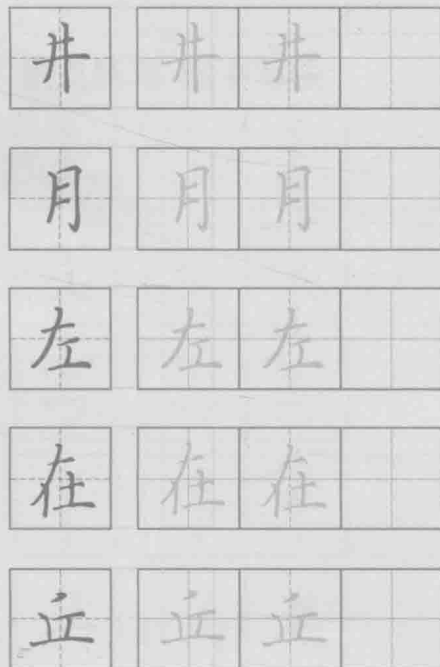 井 井 井
月 月 月
左 左 左
在 在 在
丘 丘 丘